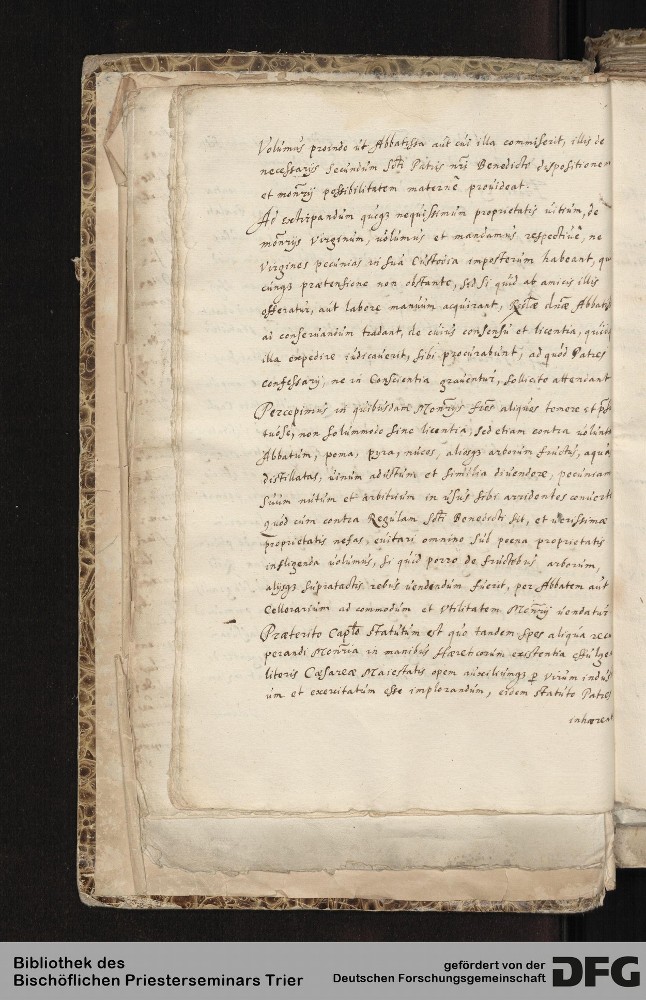 Volumus proinde ut Abbatissa aut cui illa commiserit, illis de
necessarijs secundum Scti Patris nri Benedicti dispositionem
et monrij possibilitatem materne provideat.
Ad extirpandum quoque nequissimum proprietatis vitium, de
monrijs Virginum, volumus et mandamus respective, ne
Virgines pecunias in sua custodia imposterum habeant, qu
cunque prætensione non obstante, sed si quid ab amicis illis
offeratur, aut labore manuum acquirant, dnæ Abbatis
ad conservandum tradant, de cuius consensu et licentia, quic
illa expedire iudicaverit, sibi procurabunt, ad quod Patres
Confessarij, ne in Conscientia graventur, sollicite attendant
Percepimus in quibusdam Monrijs frês aliquos tenere et
tuose, non solummodo sine licentia, sed etiam contra volunt
Abbatum, poma, pyra, nuces, aliosque arborum fructus, aqua
distillatas, vinum adustum et similia divendere, pecuniam
suum nutum et arbitrium in usus sibi arridentes convert
quod cum contra Regulam Scti Benedicti sit, et verissimæ
proprietatis nefas, evitari omnino sub poena proprietatis
infligenda volumus, si quid porro de fructibus arborum,
alijsque supratactis rebus vendendum fuerit, per Abbatem aut
Cellerarium ad commodum et utilitatem Monrij vendatur
Præterito Caplo statutum est quo tandem spes aliqua rec
perandi Monria in manibus Hæreticorum existentia effulge
literis Cæsareæ Maiestatis opem auxiliumque p virum indus
um et exercitatum esse implorandum, eidem statuto Patres
inhæreat
Bibliothek des
Bischöflichen Priesterseminars Trier
gefördert von der
Deutschen Forschungsgemeinschaft
DFG